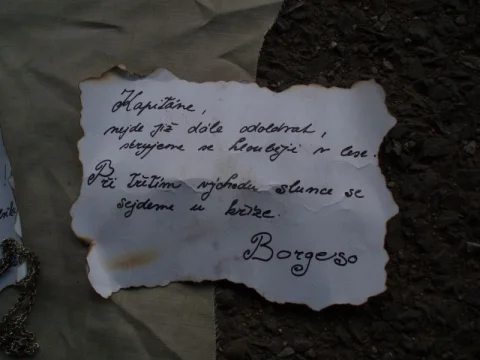 Kapitáne,
nejde již dále odolávat,
skryjeme se hlouběji v lese.
Při třetím východu slunce se
sejdeme u kříže.
Borgeso